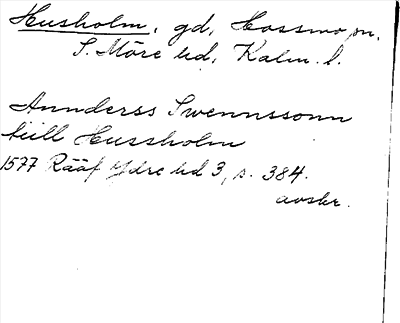 Husholm, gd, Hossmo sn,
S. Möre hd, Kalm. l.
Annderss Swennssonn
tiill Hussholm
1577 Rääf Ydre hd 3, s. 384.
avskr.